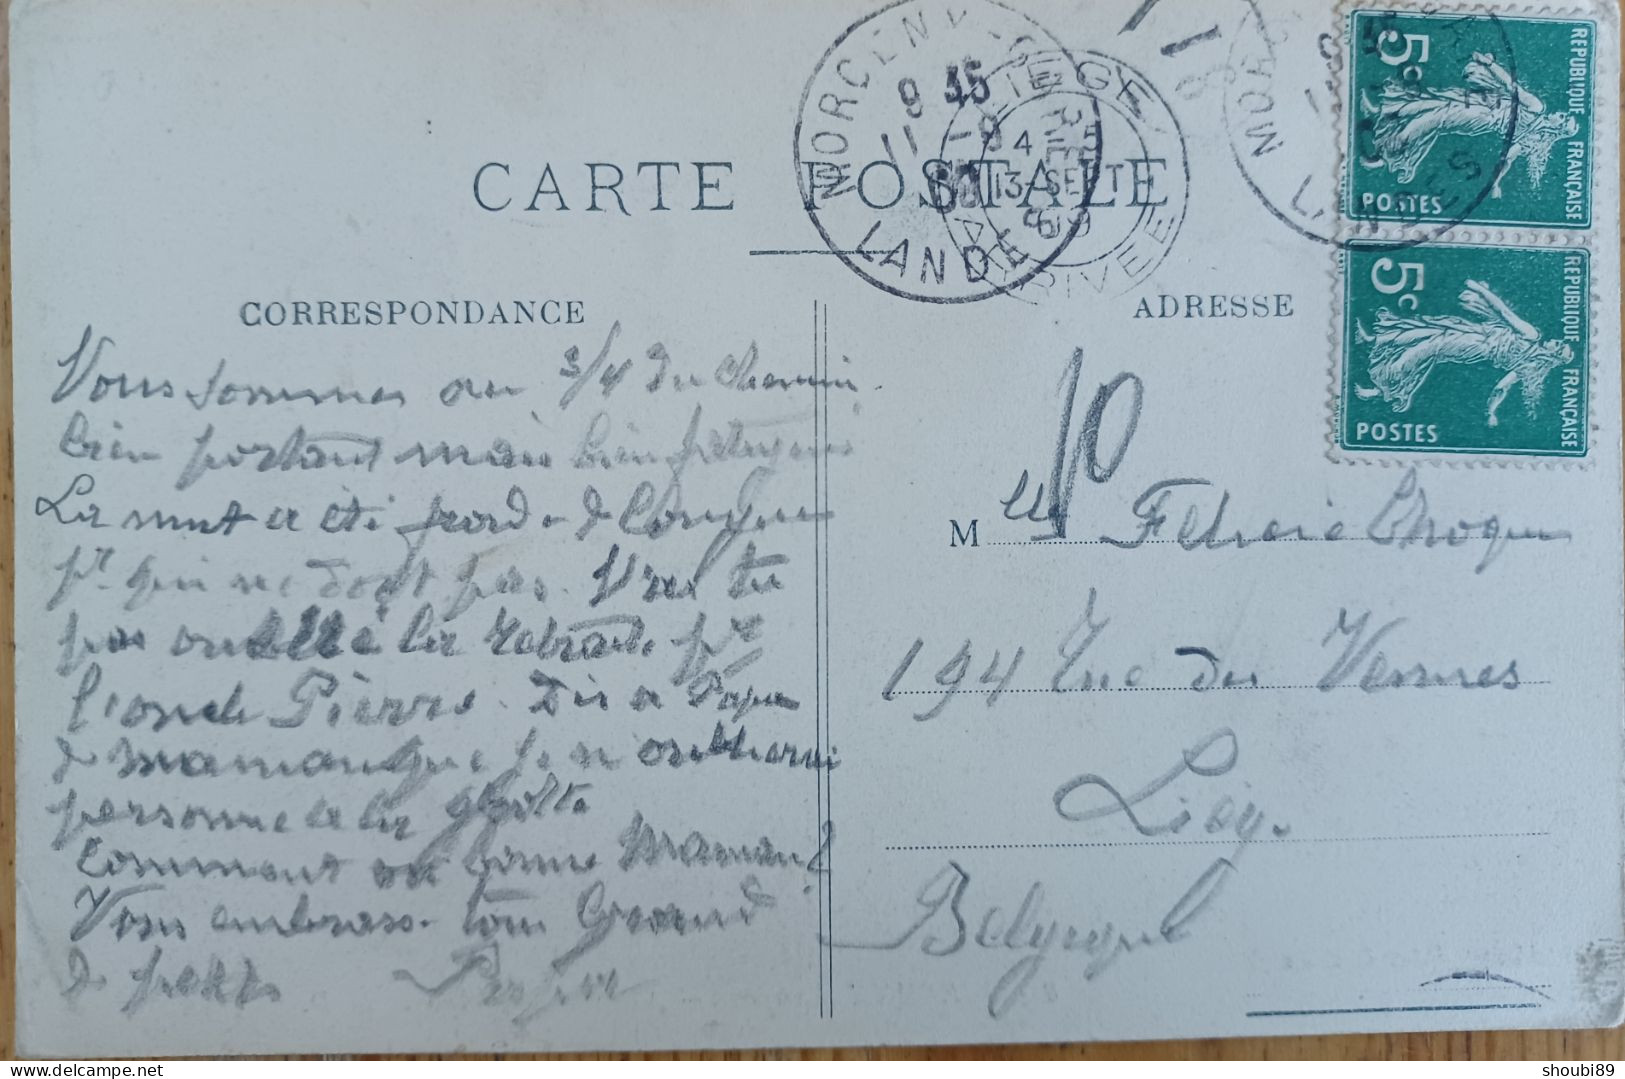 CARTE POSTALE
MORCENX
9 35
11 -9
LANDES
LIEGE
13 SEPT
1909
ARRIVEE
5c
REPUBLIQUE FRANÇAISE
POSTES
5c
REPUBLIQUE FRANÇAISE
POSTES
CORRESPONDANCE
ADRESSE
10
Nous sommes au 3/4 du chemin
bien portant mais bien fatigués
La nuit a été froide & longue
pr qui ne dort pas.
pas oublié la pr
l'oncle Pierre. Dis à Papa
& maman que je n'oublierai
personne
Comment va bonne Maman?
Vous embrasse tous Grand
& petits
M elle Felicie
194 Rue des Vennes
Liège.
Belgique
shoubi89